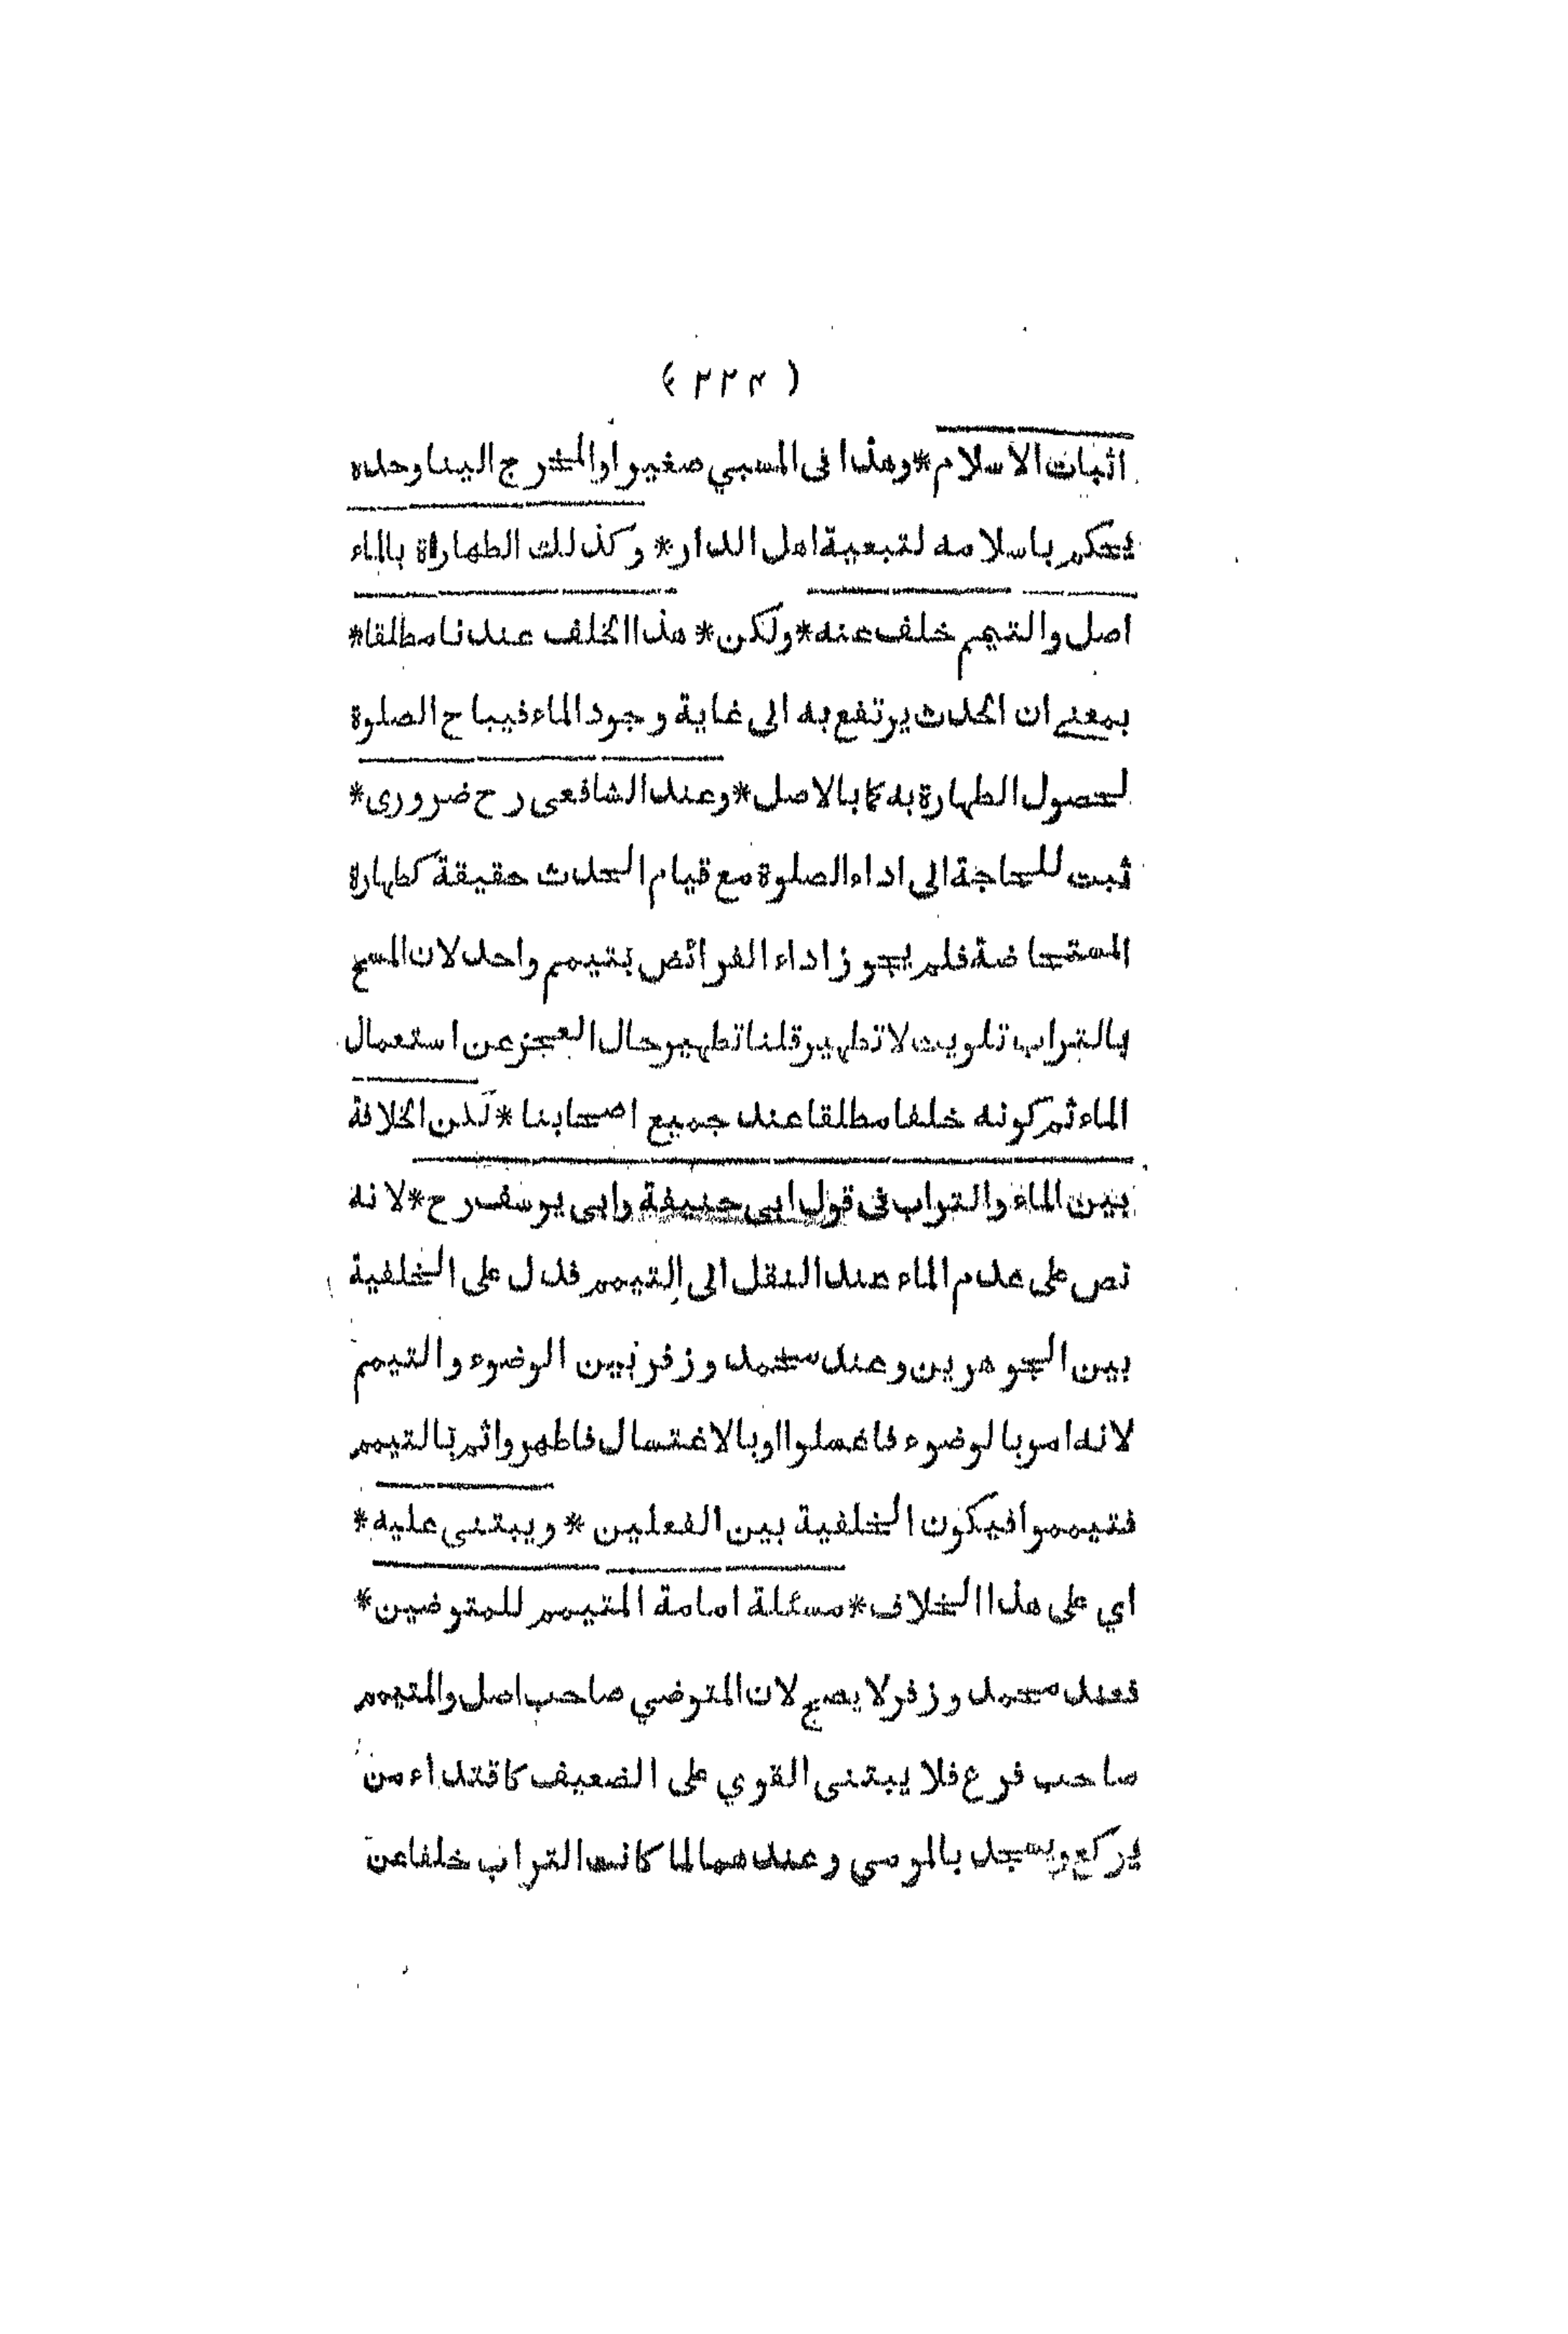 ( ٢٢٤ )
اثبات الاسلام * وهذا فى المسبي صغيرا والمخرج الينا وحده
يحكم باسلامه لتبعية اهل الدار * وكذلك الطهارة بالماء
اصل والتيمم خلف عنه * ولكن * هذا الخلف عندنا مطلقا *
بمعنى ان الحدث يرتفع به الى غاية وجود الماء فيباح الصلوة
لحصول الطهارة به كما بالاصل * وعند الشافعى رح ضرورى *
ثبت للحاجة الى اداء الصلوة مع قيام الحدث حقيقة كطهارة
المستحاضة فلم يجوز اداء الفرائض بتيمم واحد لان المسح
بالتراب تلويث لا تطهير قلنا تطهير حال العجز عن استعمال
الماء ثم كونه خلفا مطلقا عند جميع اصحابنا * لكن الخلافة
بين الماء والتراب فى قول ابى حنيفة وابى يوسف رح * لانه
نص على عدم الماء عند النقل الى التيمم فدل على الخلفية
بين الجوهرين وعند محمد وزفر بين الوضوء والتيمم
لانه امر بالوضوء فاغسلوا او بالاغتسال فاطهروا ثم بالتيمم
فتيمموا فيكون الخلفية بين الفعلين * ويبتنى عليه *
اي على هذا الخلاف * مسئلة امامة المتيمم للمتوضين *
فعند محمد وزفر لا يصح لان المتوضي صاحب اصل والمتيمم
صاحب فرع فلا يبتنى القوي على الضعيف كاقتداء من
يركع ويسجد بالمومي وعندهما لما كانت التراب خلفا عن